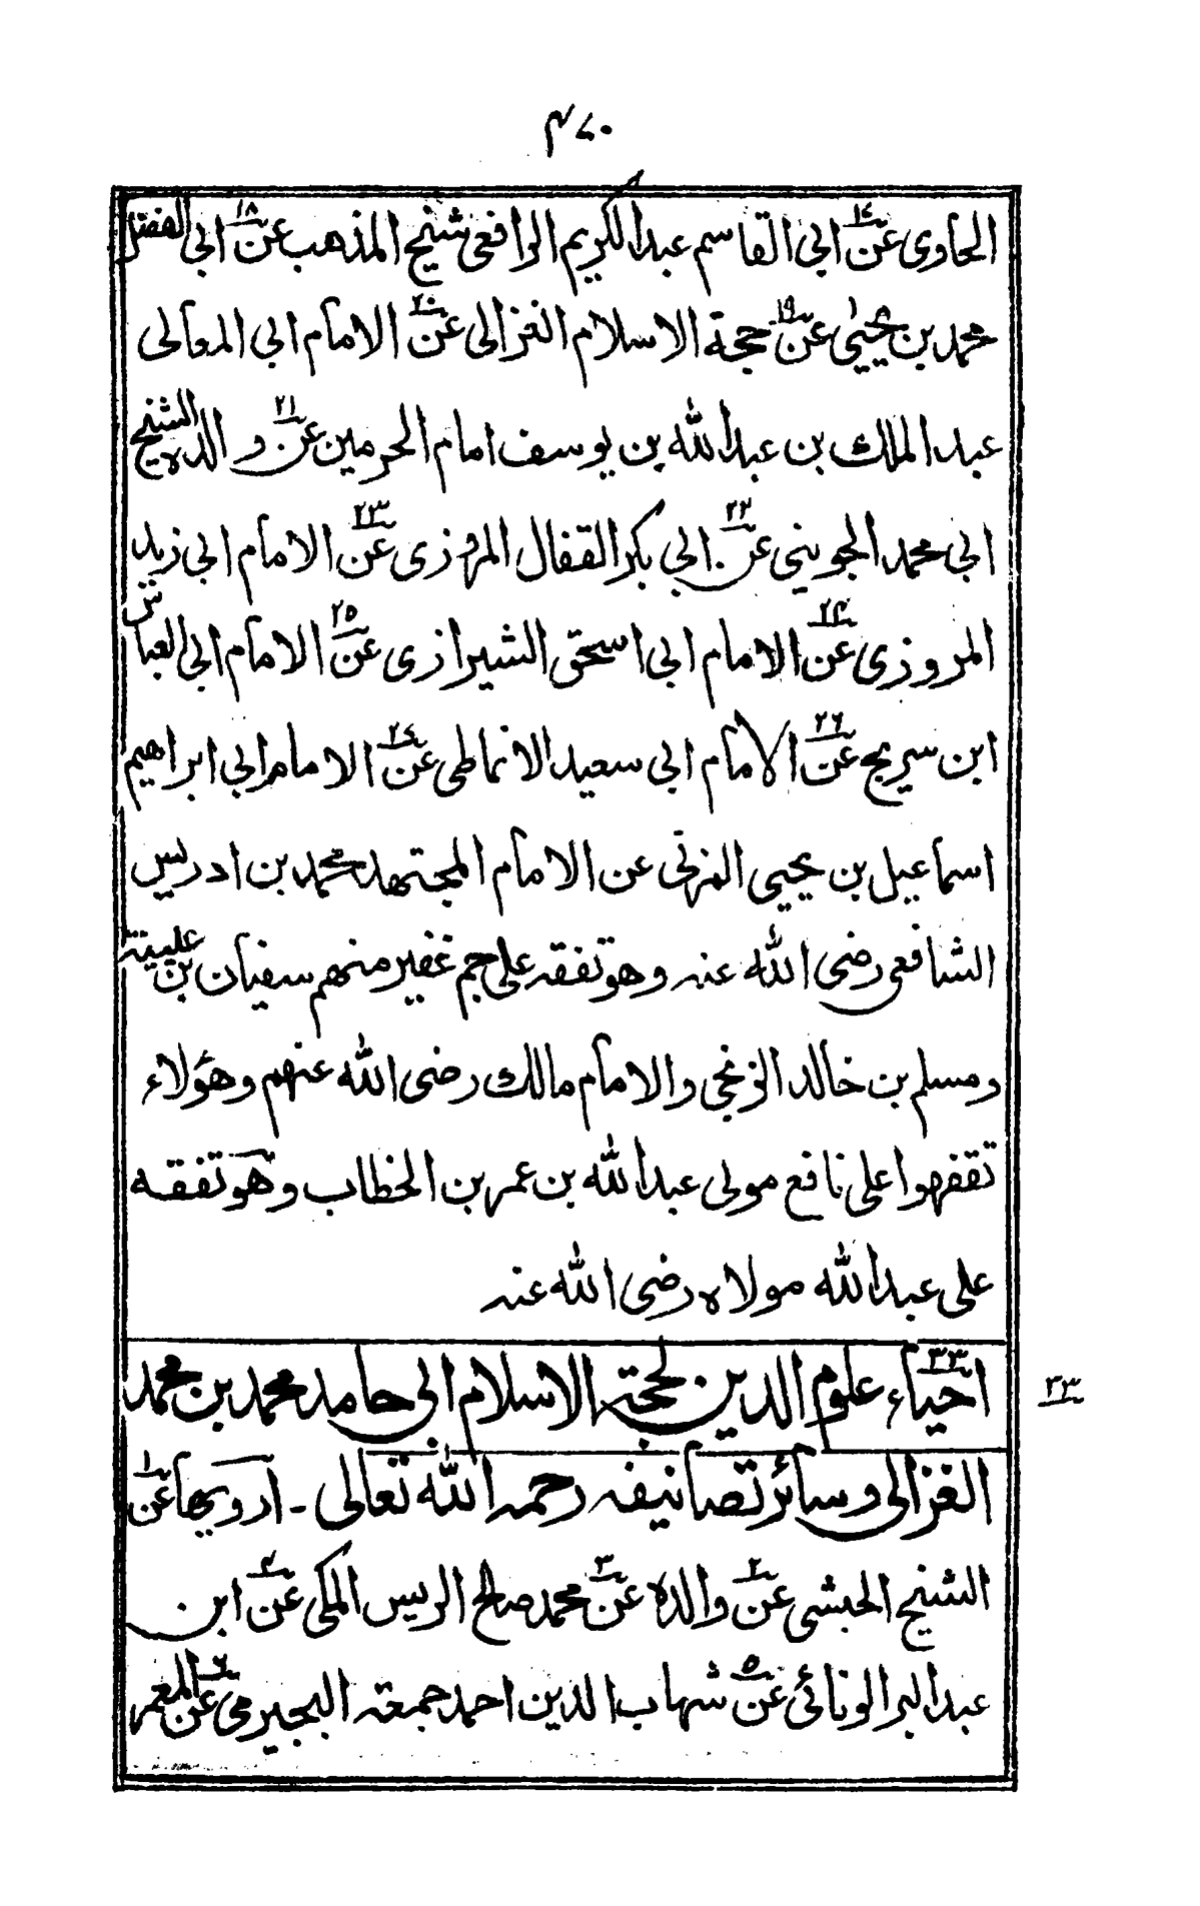 ۴۷۰
الحاوى عن۱۷ ابى القاسم عبد الكريم الرافعى شيخ المذهب عن۱۸ ابى الفضل
محمد بن يحيىٰ عن۱۹ حجة الاسلام الغزالى عن۲۰ الامام ابى المعالى
عبد الملك بن عبد الله بن يوسف امام الحرمين عن۲۱ والده الشيخ
ابى محمد الجوينى عن۲۲ ابى بكر القفال المروزى عن۲۳ الامام ابى زيد
المروزى عن۲۴ الامام ابى اسحق الشيرازى عن۲۵ الامام ابى العباس
ابن سريج عن۲۶ الامام ابى سعيد الانماطى عن۲۷ الامام ابى ابراهيم
اسماعيل بن يحيى المزنى عن الامام المجتهد محمد بن ادريس
الشافعى رضى الله عنه وهو تفقه على جم غفير منهم سفيان بن عيينة
ومسلم بن خالد الزنجى والامام مالك رضى الله عنهم وهؤلاء
تفقهوا على نافع مولى عبد الله بن عمر بن الخطاب وهو تفقه
على عبد الله مولاه رضى الله عنه
۳۳
احياء۳۳ علوم الدين لحجة الاسلام ابى حامد محمد بن محمد
الغزالى وسائر تصانيفه رحمه الله تعالى ۔ ارويها عن۱
الشيخ الحبشى عن۲ والده عن۳ محمد صالح الريس المكى عن۴ ابن
عبد البر الونائى عن۵ شهاب الدين احمد جمعة البجيرمى عن۶ المعمر